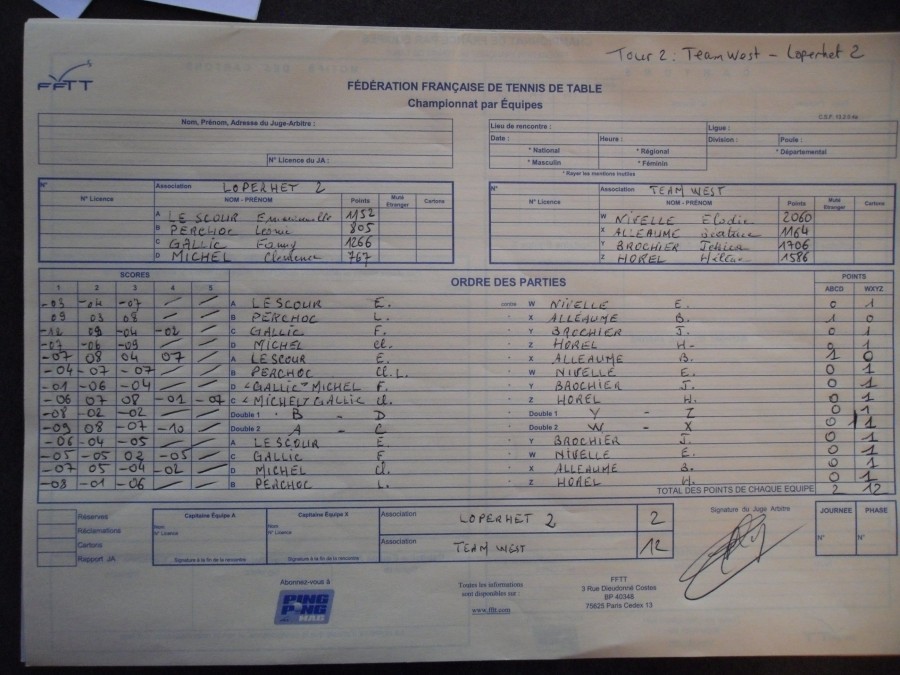 Tour 2 : Team West - Loperhet 2
FFTT
FÉDÉRATION FRANÇAISE DE TENNIS DE TABLE
Championnat par Équipes
Nom, Prénom, Adresse du Juge-Arbitre :
N° Licence du JA :
Lieu de rencontre : Ligue :
Date : Heure : Division : Poule :
* National * Régional * Départemental
* Masculin * Féminin
* Rayer les mentions inutiles
N° Association LOPERHET 2
N° Licence NOM - PRÉNOM Points Muté Etranger Cartons
A LE SCOUR Emmanuelle 1152
B PERCHOC Leonie 805
C GALLIC Fanny 1266
D MICHEL Clemence 767
N° Association TEAM WEST
N° Licence NOM - PRÉNOM Points Muté Etranger Cartons
W NIVELLE Elodie 2060
X ALLEAUME Béatrice 1164
Y BROCHIER 1706
Z HOREL 1586
SCORES ORDRE DES PARTIES POINTS
1 2 3 4 5 ABCD WXYZ
-03 -04 -07 A LESCOUR E. contre W NIVELLE E. 0 1
09 03 08 B PERCHOC L. X ALLEAUME B. 1 0
-12 09 -04 -02 C GALLIC F. Y BROCHIER J. 0 1
-07 -06 -09 D MICHEL Cl. Z HOREL H. 0 1
-07 08 04 07 A LESCOUR E. X ALLEAUME B. 1 0
-04 -07 -07 B PERCHOC L. W NIVELLE E. 0 1
-01 -06 -04 D GALLIC MICHEL F. Y BROCHIER J. 0 1
-06 07 08 -01 -07 C MICHEL GALLIC Cl. Z HOREL H. 0 1
-08 -02 -02 Double 1 B - D Double 1 Y - Z 0 1
-09 08 -07 -10 Double 2 A - C Double 2 W - X 0 1
-06 -04 -05 A LESCOUR E. Y BROCHIER J. 0 1
-05 -05 02 -05 C GALLIC F W NIVELLE E. 0 1
-07 05 -04 -02 D MICHEL Cl. X ALLEAUME B. 0 1
-08 -01 -06 B PERCHOC L. Z HOREL H. 0 1
TOTAL DES POINTS DE CHAQUE EQUIPE 2 12
Réserves
Réclamations
Cartons
Rapport JA
Capitaine Équipe A
Nom
N° Licence
Signature à la fin de la rencontre
Capitaine Équipe X
Nom
N° Licence
Signature à la fin de la rencontre
Association LOPERHET 2 2
Association TEAM WEST 12
Signature du Juge Arbitre
JOURNEE PHASE
N° N°
Abonnez-vous à
PING
PONG
MAG
Toutes les informations
sont disponibles sur :
www.fftt.com
FFTT
3 Rue Dieudonné Costes
BP 40348
75625 Paris Cedex 13